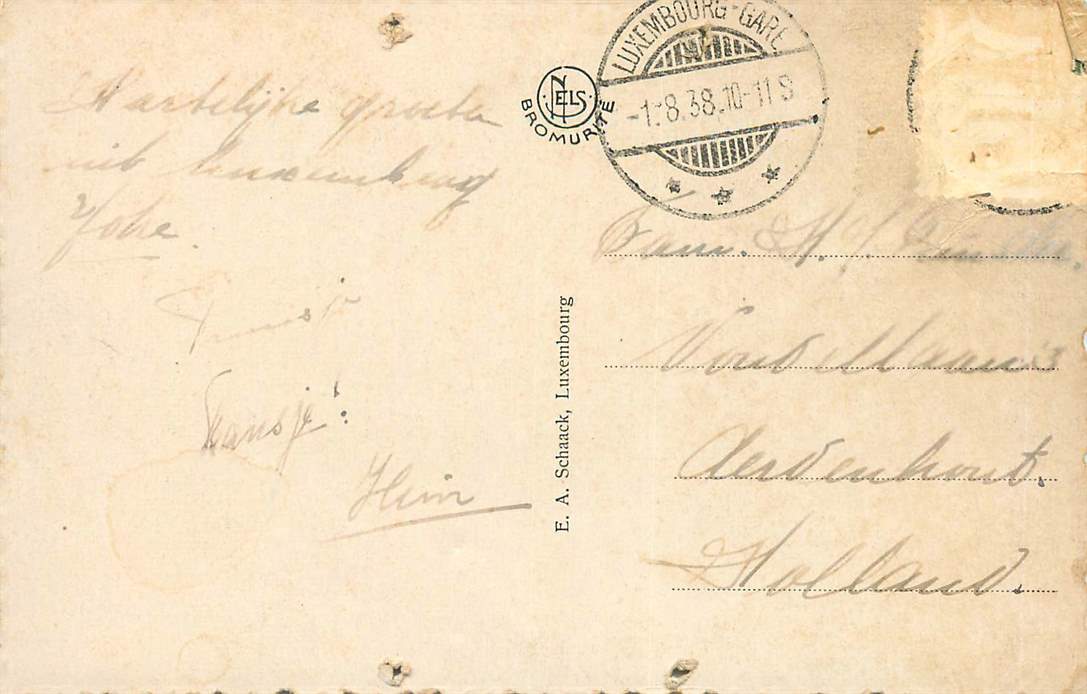 Hartelijke groeten
uit Luxemburg
Joke.
Hansje
Wim
NELS
BROMURITE
LUXEMBOURG-GARE
-1.8.38.10-11 S
E. A. Schaack, Luxembourg
Fam.
Vondellaan
Aerdenhout.
Holland.